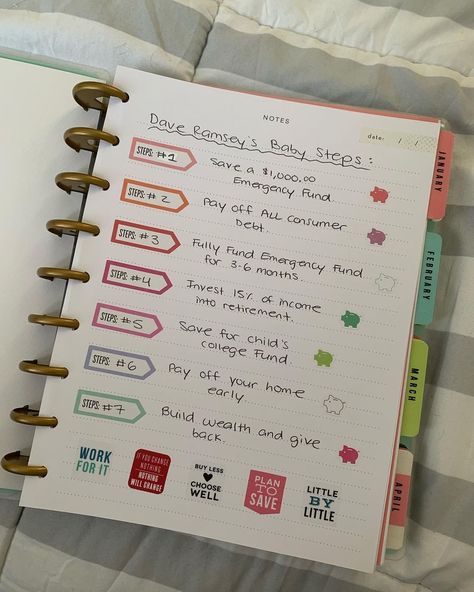 NOTES
date: / /
Dave Ramsey's Baby Steps:
STEPS: #1
Save a $1,000.00
Emergency Fund.
STEPS: #2
Pay off ALL consumer
Debt.
STEPS: #3
Fully Fund Emergency Fund
for 3-6 months.
STEPS: #4
Invest 15% of income
into retirement.
STEPS: #5
Save for child's
college Fund.
STEPS: #6
Pay off your home
early.
STEPS: #7
Build wealth and give
back.
WORK
FOR IT
IF YOU CHANGE
NOTHING
NOTHING
WILL CHANGE
BUY LESS
CHOOSE
WELL
PLAN
TO
SAVE
LITTLE
BY
LITTLE
JANUARY
FEBRUARY
MARCH
APRIL